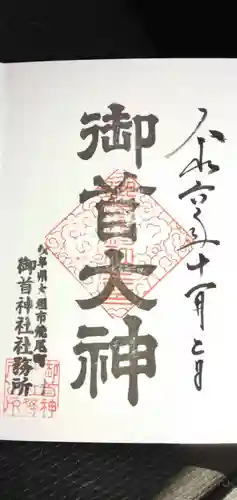 令和六年十一月二日
御首大神
岐阜県大垣市荒尾町
御首神社社務所